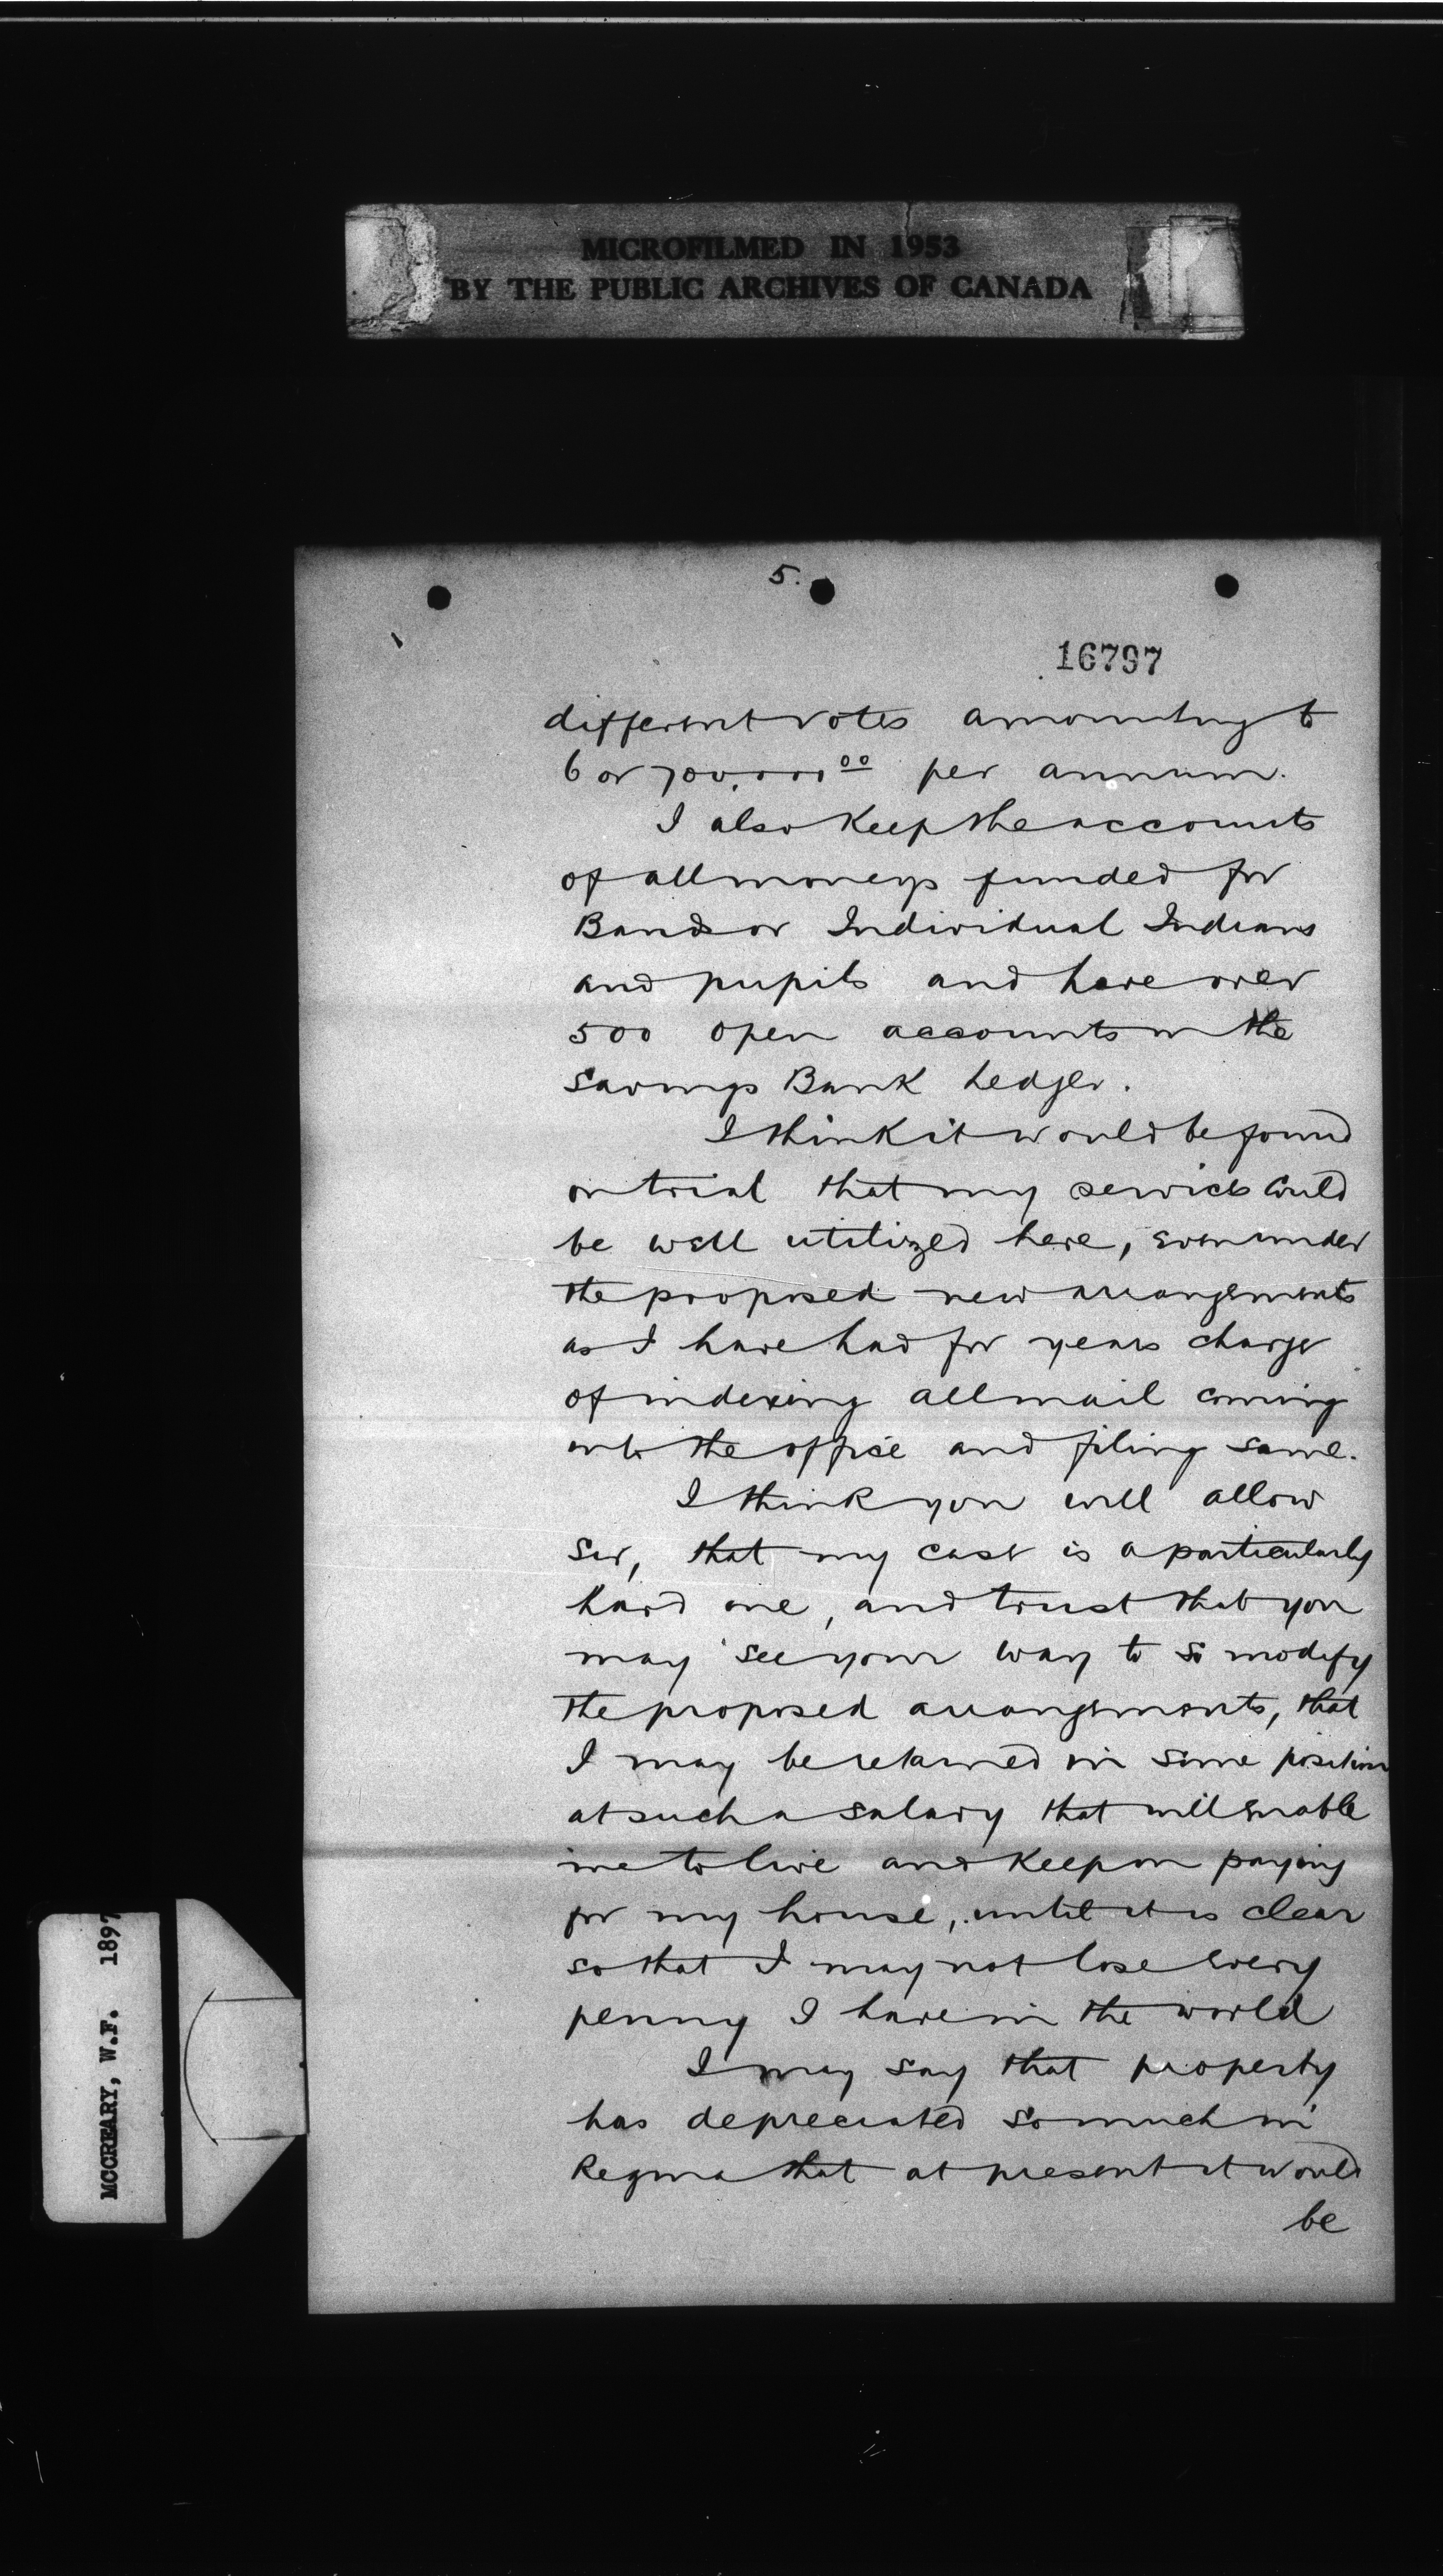 MICROFILMED IN 1953
BY THE PUBLIC ARCHIVES OF CANADA
5.
16797
different votes amounting to
6 or 700,000 00 per annum.
I also keep the accounts
of all moneys funded for
Bands or Individual Indians
and pupils and have over
500 open accounts in the
Savings Bank Ledger.
I think it would be found
on trial that my services could
be well utilized here, even under
the proposed new arrangements
as I have had for years charge
of indexing all mail coming
into the office and filing same.
I think you will allow
Sir, that my case is a particularly
hard one, and trust that you
may see your way to so modify
the proposed arrangements, that
I may be retained in some position
at such a salary that will enable
me to live and keep on paying
for my house, until it is clear
so that I may not lose every
penny I have in the world
I may say that property
has depreciated so much in
Regina that at present it would
be
MCCREARY, W.F. 1897